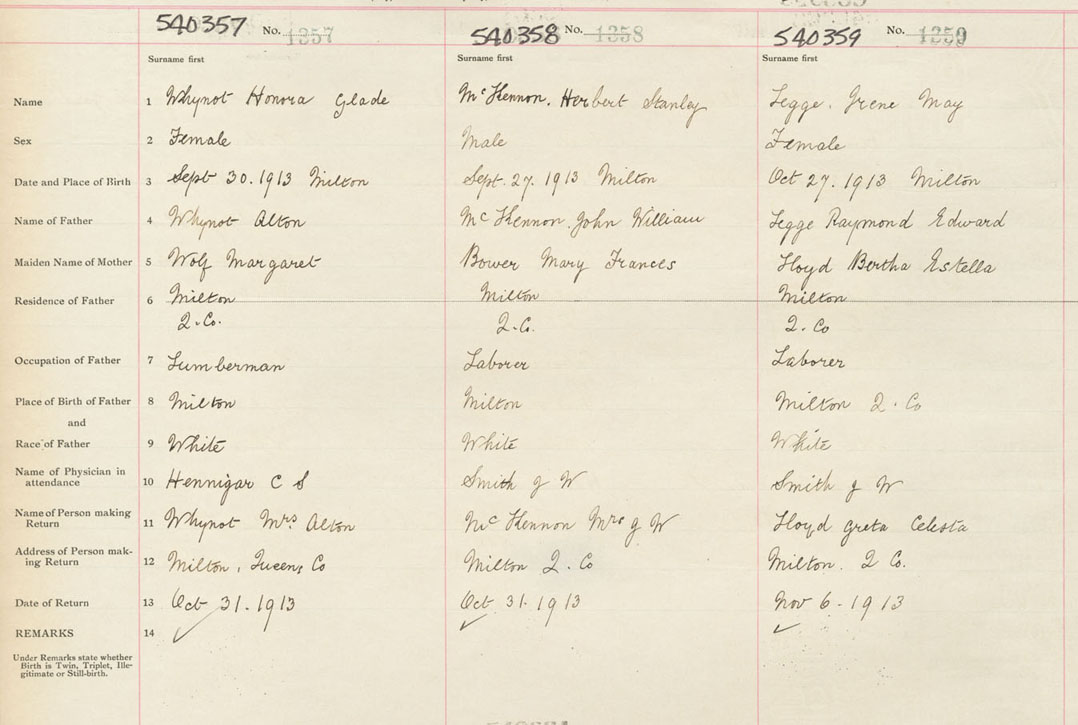 540357 No. 1357 540358 No. 1358 540359 No. 1359
Surname first Surname first Surname first
Name 1 Whynot Honora Glade McKennon, Herbert Stanley Legge, Irene May
Sex 2 Female Male Female
Date and Place of Birth 3 Sept 30. 1913 Milton Sept. 27. 1913 Milton Oct 27. 1913 Milton
Name of Father 4 Whynot Alton McKennon, John William Legge Raymond Edward
Maiden Name of Mother 5 Wolf Margaret Bower Mary Frances Lloyd Bertha Estella
Residence of Father 6 Milton Milton Milton
Q. Co. Q. Co. Q. Co
Occupation of Father 7 Lumberman Laborer Laborer
Place of Birth of Father 8 Milton Milton Milton Q. Co
and
Race of Father 9 White White White
Name of Physician in
attendance 10 Hennigar C S Smith J W Smith J W
Name of Person making
Return 11 Whynot Mrs Alton McKennon Mrs J W Lloyd Greta Celesta
Address of Person mak-
ing Return 12 Milton, Queens Co Milton Q. Co Milton. Q Co.
Date of Return 13 Oct 31. 1913 Oct 31. 1913 Nov 6 - 1913
REMARKS 14 ✓ ✓ ✓
Under Remarks state whether
Birth is Twin, Triplet, Ille-
gitimate or Still-birth.